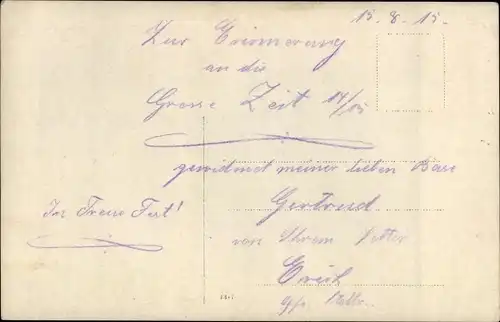 15.8.15.
Zur Erinnerung
an die
Grosse Zeit 14/15
gewidmet meiner lieben Base
In Treue Fest!
Gertrud
von Ihrem Vetter
Erich